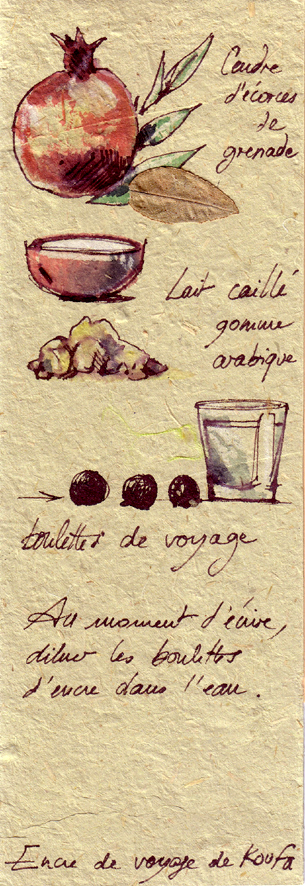 Cendre
d'écorces
de
grenade
Lait caillé
gomme
arabique
boulettes de voyage
Au moment d'écrire,
diluer les boulettes
d'encre dans l'eau.
Encre de voyage de Koufa